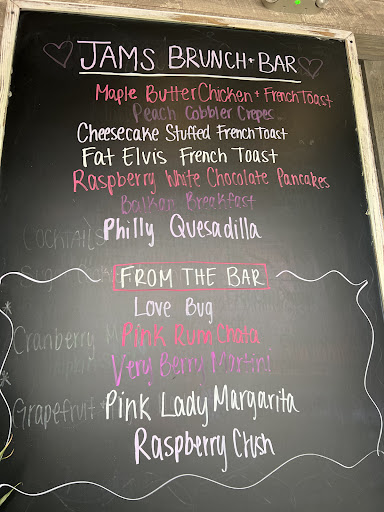 JAMS BRUNCH + BAR
Maple Butter Chicken + French Toast
Peach Cobbler Crepes
Cheesecake Stuffed French Toast
Fat Elvis French Toast
Raspberry White Chocolate Pancakes
Balkan Breakfast
COCKTAILS
Philly Quesadilla
FROM THE BAR
Love Bug
Cranberry
Pink Rum Chata
Very Berry Martini
Grapefruit
Pink Lady Margarita
Raspberry Crush